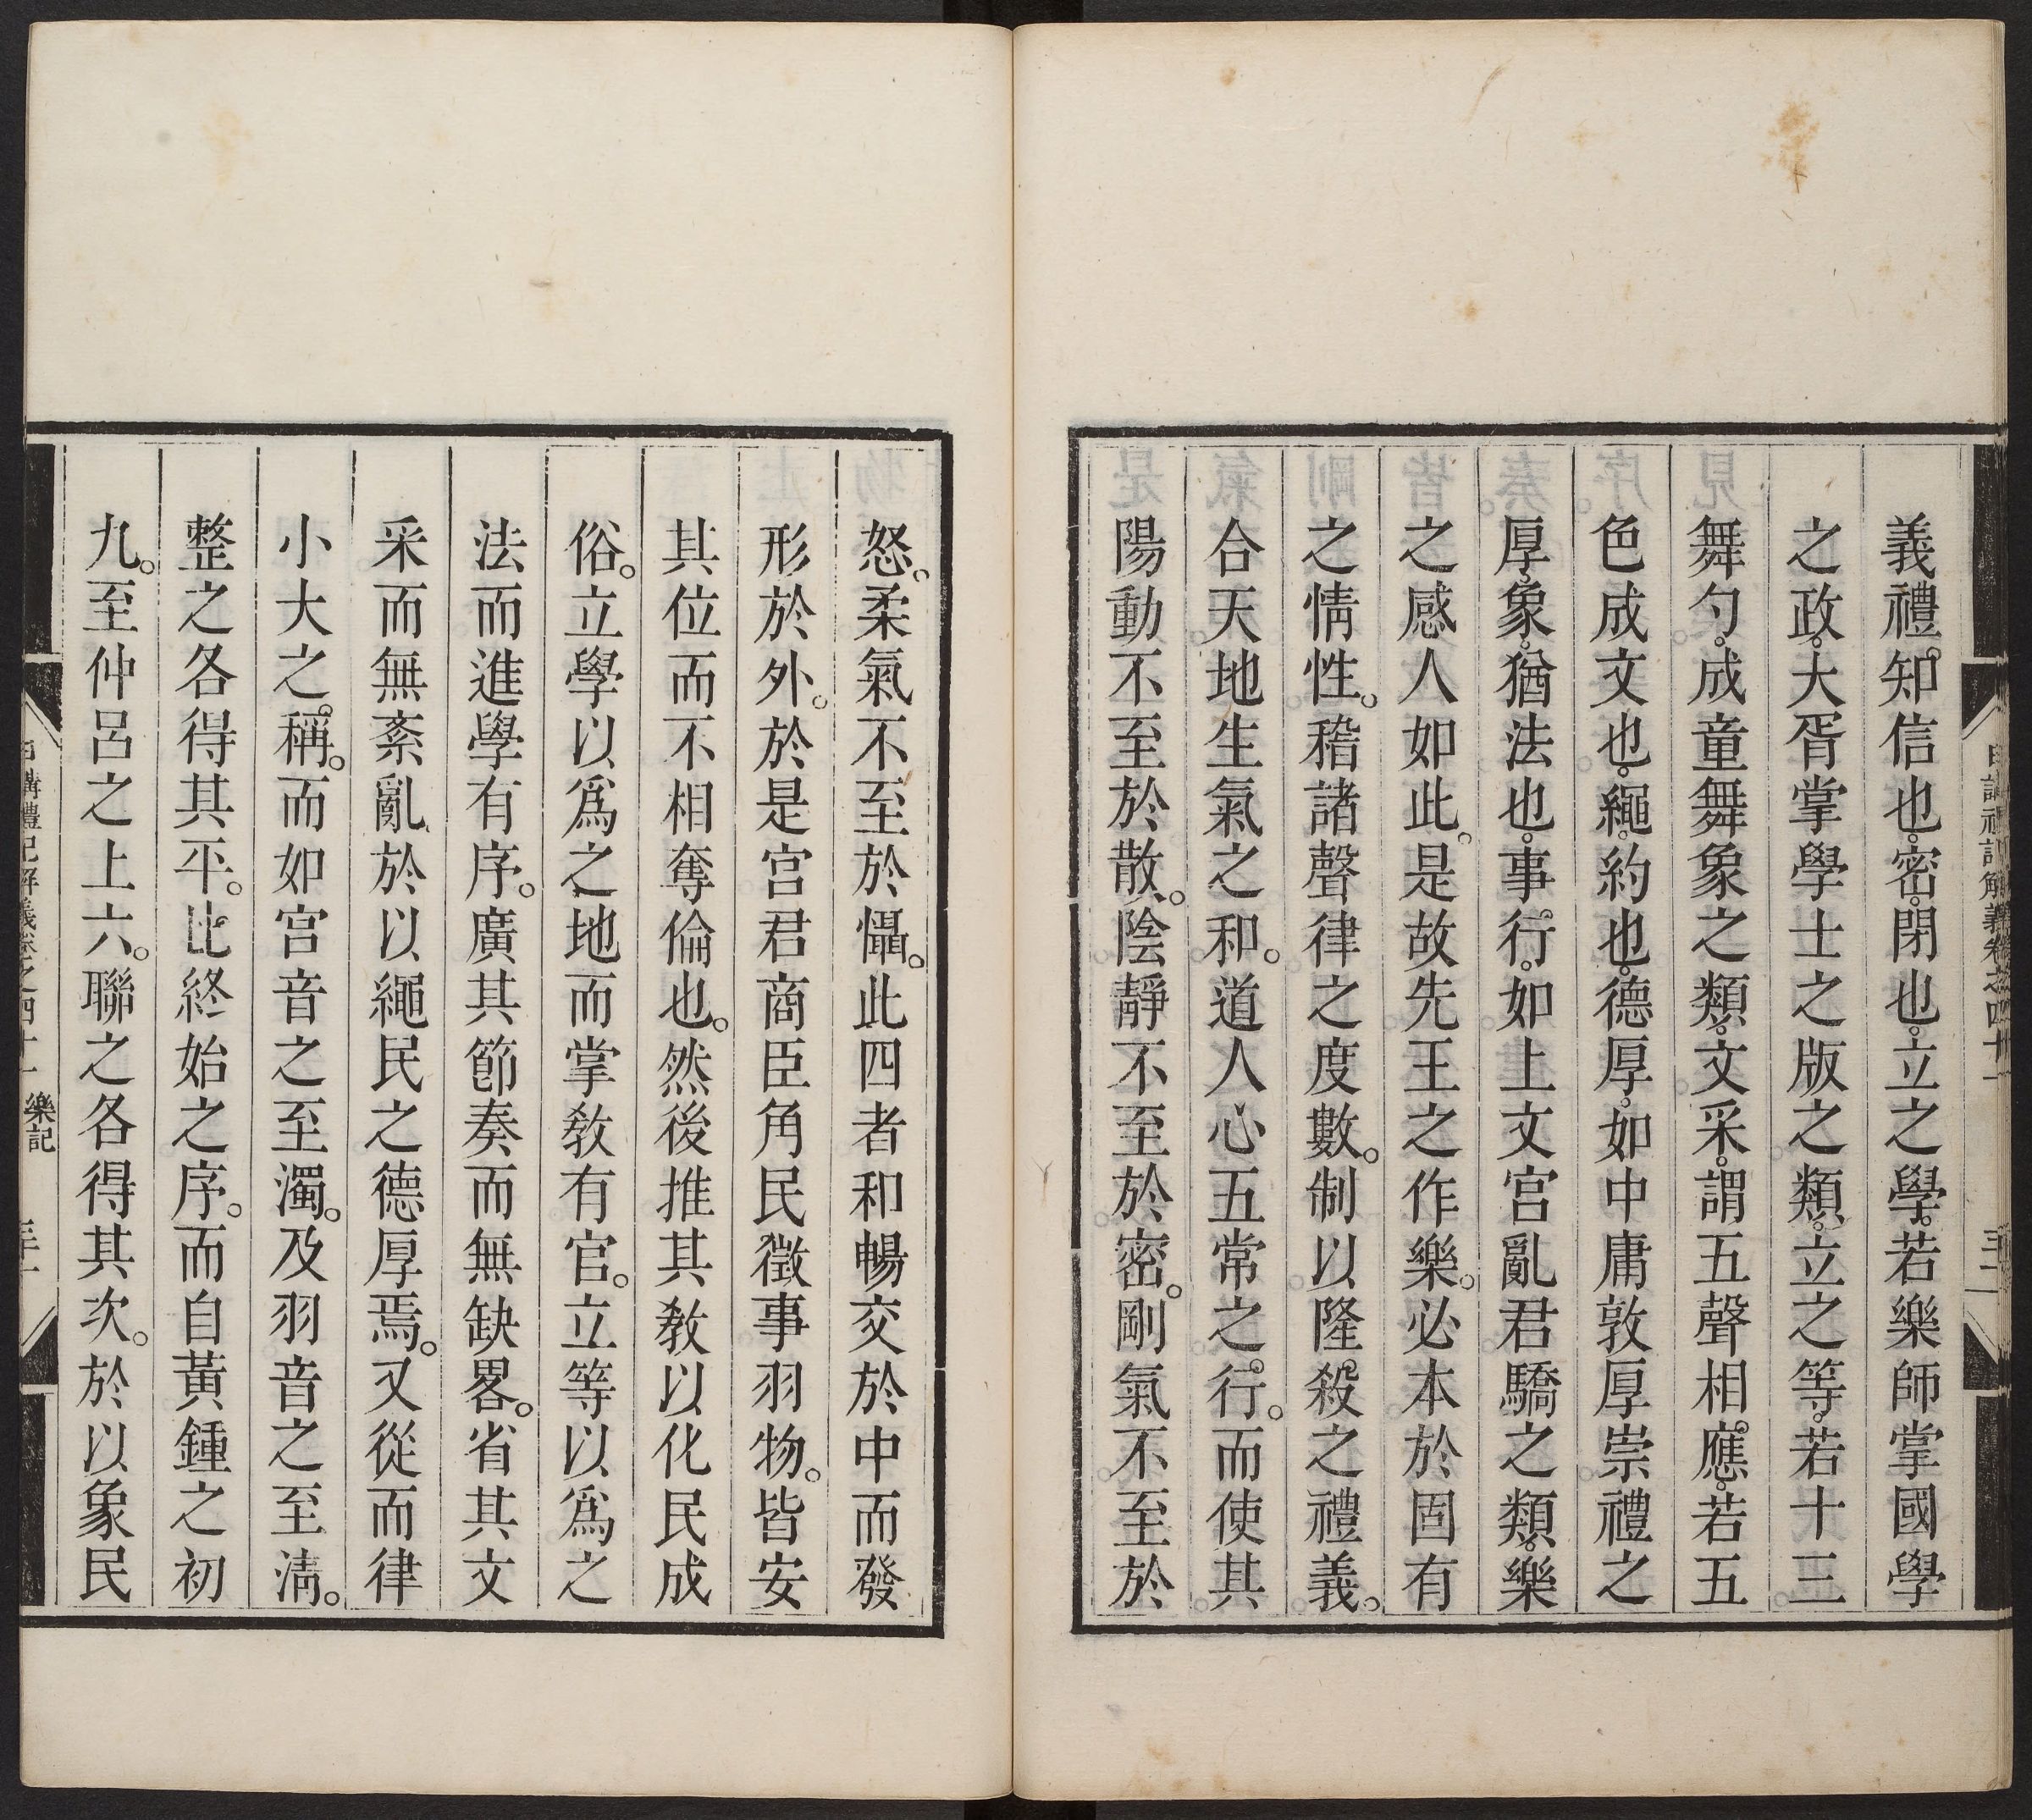 義禮。知信也。密。閉也。立之學。若樂師掌國學
之政。大胥掌學士之版之類。立之等。若十三
舞勺。成童舞象之類。文采。謂五聲相應。若五
色成文也。繩。約也。德厚。如中庸敦厚崇禮之
厚。象。猶法也。事。行。如上文宮亂君驕之類。樂
之感人如此。是故先王之作樂。必本於固有
之情性。稽諸聲律之度數。制以隆殺之禮義。
合天地生氣之和。道人心五常之行。而使其
陽動不至於散。陰靜不至於密。剛氣不至於
怒。柔氣不至於懾。此四者和暢交於中而發
形於外。於是宮君商臣角民徵事羽物。皆安
其位而不相奪倫也。然後推其教以化民成
俗。立學以爲之地而掌教有官。立等以爲之
法而進學有序。廣其節奏而無缺畧。省其文
采而無紊亂。於以繩民之德厚焉。又從而律
小大之。稱。而如宮音之至濁。及羽音之至淸。
整之各得其平。比終始之序。而自黃鍾之初
九。至仲呂之上六。聯之各得其次。於以象民
日講禮記解義卷之四十一 樂記